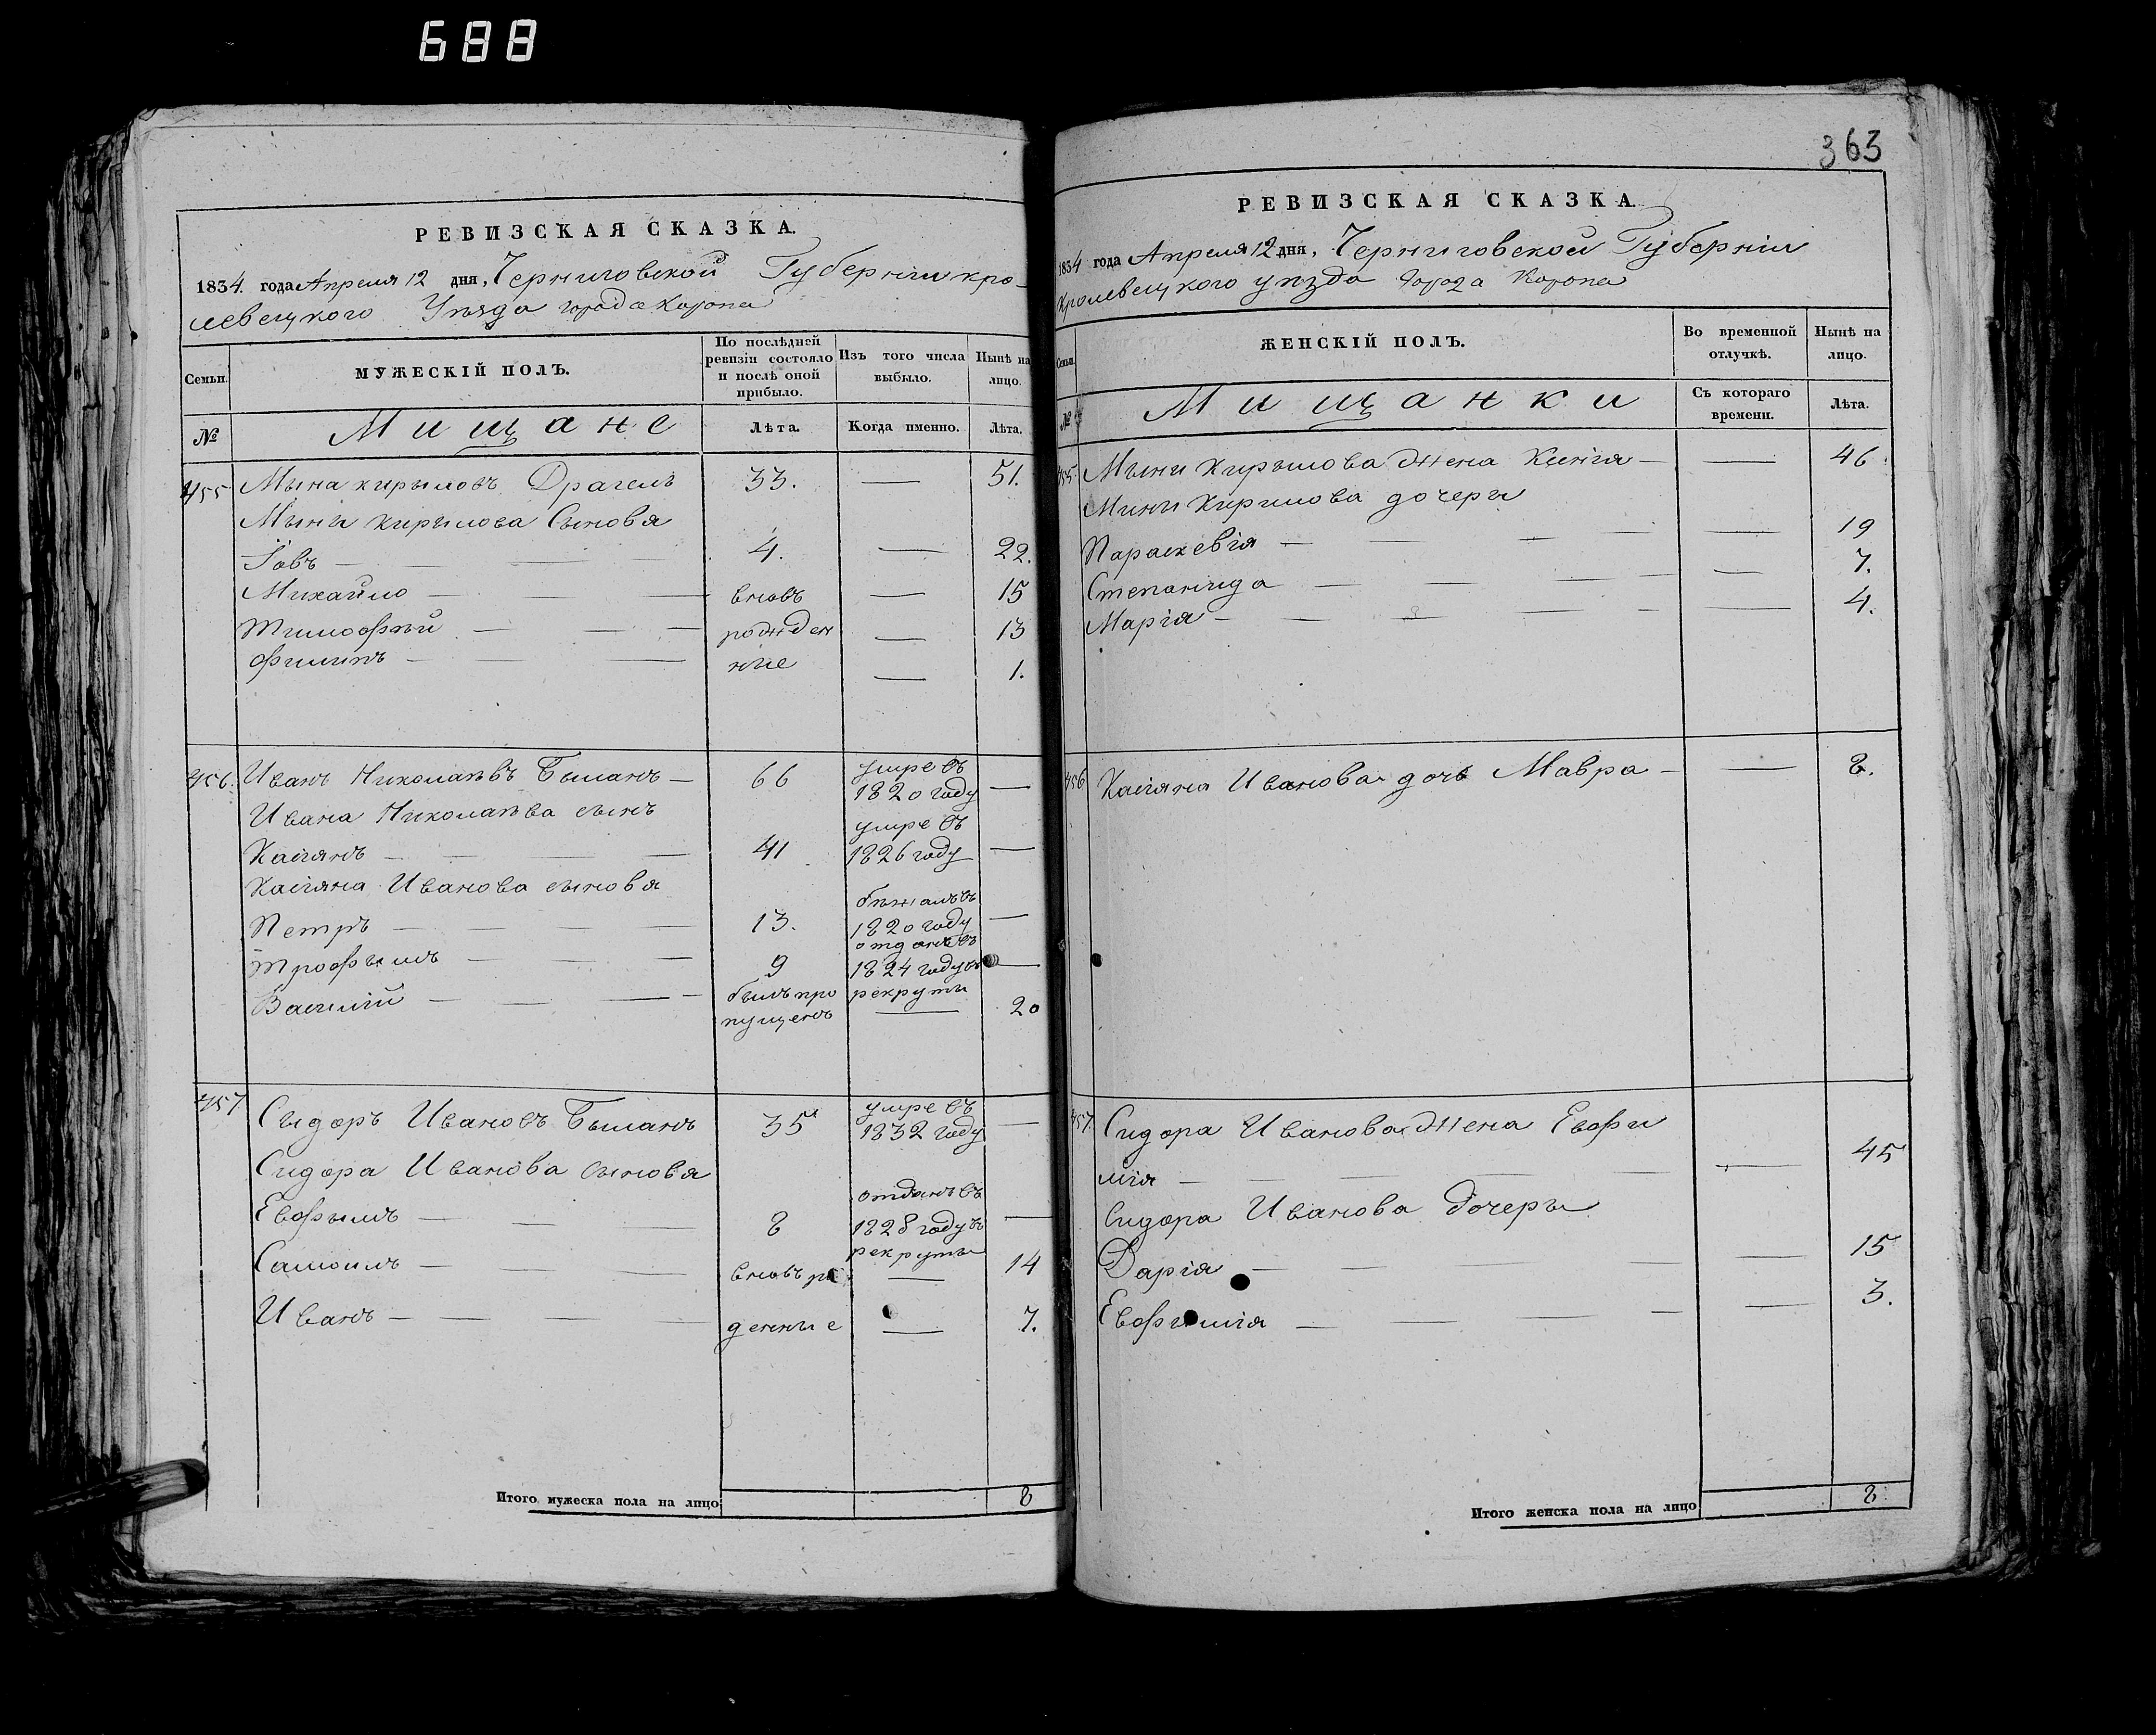 688
РЕВИЗСКАЯ СКАЗКА.
1834. года Апреля 12 дня, Черниговской Губернии кро-
левецкого Уезда города Коропа
Семьи.
МУЖЕСКІЙ ПОЛЪ.
По послѣдней
ревизіи состояло
и послѣ оной
прибыло.
Изъ того числа
выбыло.
Нынѣ на
лицо.
№
Мищане
Лѣта.
Когда именно.
Лѣта.
455 Мына Кирыловъ Драгель 33. — 51.
Мыны Кирылова Сыновя
Іовъ — 4. — 22.
Михайло — вновь — 15
Тимофѣй — рожден — 13
Филипъ — ные — 1.
456. Иванъ Николаевъ Быланъ — 66 умре въ
1820 году —
Ивана Николаева сынъ
умре въ
Касіянъ — 41 1826 году —
Касіяна Иванова сыновя
бежалъ въ
Петръ — 13. 1820 году —
отданъ въ
Трофымъ — 9 1824 году въ —
Василій — былъ про рекруты
пущенъ — 20
457 Сыдоръ Ивановъ Быланъ 35 умре въ
1832 году —
Сидора Иванова сыновя
отданъ въ
Евфымъ — 8 1828 году въ —
рекруты
Самоилъ — вновь ро — 14
Иванъ — денные — 7.
Итого мужеска пола на лицо 8
363
РЕВИЗСКАЯ СКАЗКА.
1834 года Апреля 12 дня, Черниговской Губерніи
Кролевецкого уезда Города Коропа
Семьи.
ЖЕНСКІЙ ПОЛЪ.
Во временной
отлучкѣ.
Нынѣ на
лицо.
№
Мищанки
Съ котораго
времени.
Лѣта.
455. Мыны Кирылова жена Ксенія — — 46
Мины Кирилова дочеры
Параскевія — — 19
Степанида — — 7.
Марія — — 4.
456 Касіяна Иванова дочь Мавра — — 8.
457. Сидора Иванова жена Евфи
мія — — 45
Сидора Иванова дочеры
Дарія — — 15
Евфимія — — 3.
Итого женска пола на лицо 8